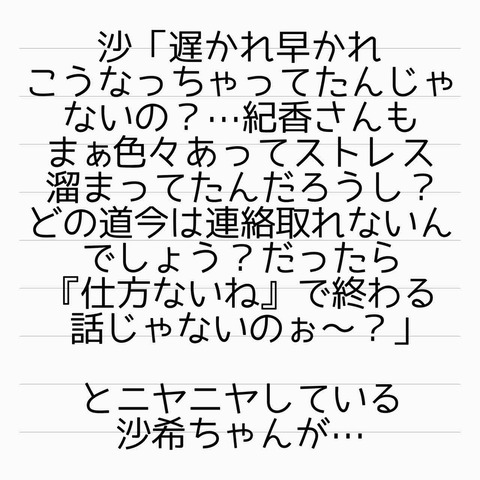 沙「遅かれ早かれ
こうなっちゃってたんじゃ
ないの？…紀香さんも
まぁ色々あってストレス
溜まってたんだろうし？
どの道今は連絡取れないん
でしょう？だったら
『仕方ないね』で終わる
話じゃないのぉ〜？」
とニヤニヤしている
沙希ちゃんが…